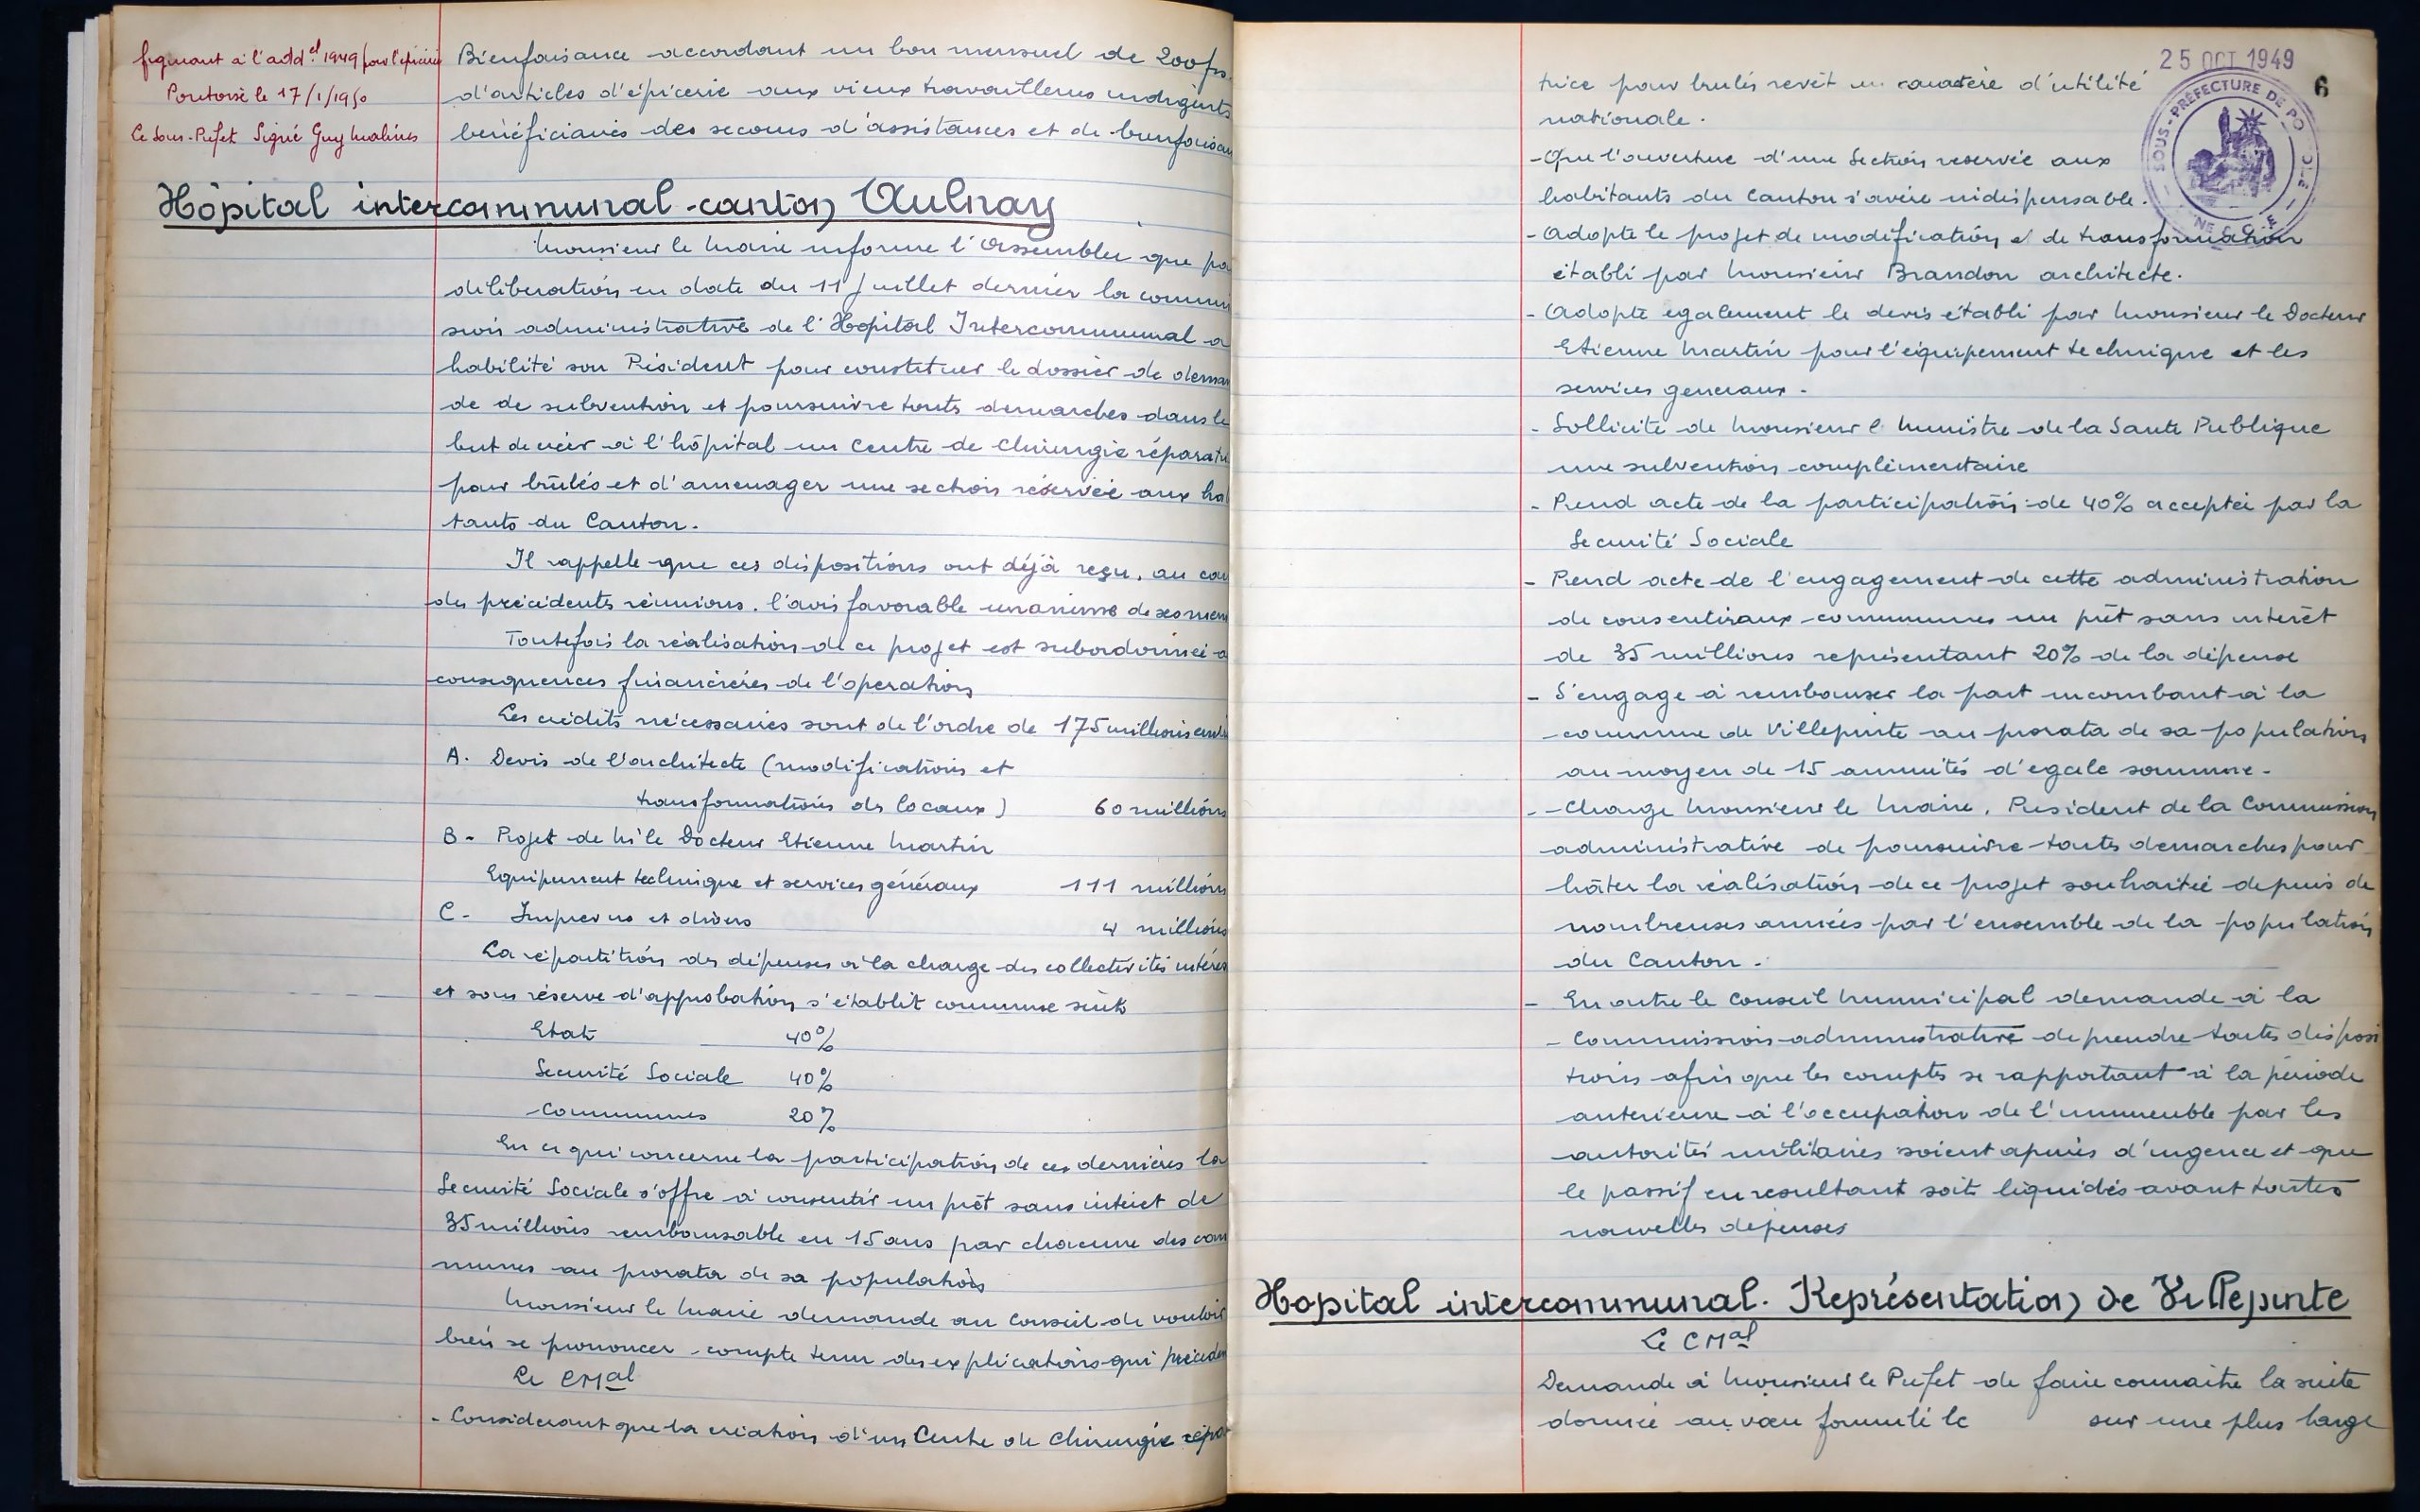 figurant à l'add.el 1949 pour l'épicerie
Pontoise le 17/1/1950
Le Sous-Préfet Signé Guy Malines
Bienfaisance accordant un bon mensuel de 200frs
d'articles d'épicerie aux vieux travailleurs indigents
bénéficiaires des secours d'assistances et de bienfaisan
Hôpital intercommunal-canton Aulnay
Monsieur le Maire informe l'Assemblée que pa
délibération en date du 11 Juillet dernier la commis
sion administrative de l'Hopital Intercommunal a
habilité son Président pour constituer le dossier de deman
de de subvention et poursuivre touts demarches dans le
but de créer à l'hôpital un Centre de Chirurgie réparatri
pour brûlés et d'amenager une section réservée aux ha
tants du Canton.
Il rappelle que ces dispositions ont déjà reçu, au cou
des précédentes réunions, l'avis favorable unanime de ses mem
Toutefois la réalisation de ce projet est subordonnée a
consequences financières de l'opération
Les crédits nécessaires sont de l'ordre de 175 millions
A. Devis de l'architecte (modifications et
transformations des locaux) 60 millions
B - Projet de Mr le Docteur Etienne Martin
Equipement technique et services généraux 111 millions
C - Imprevus et divers 4 millions
La répartition des dépenses à la charge des collectivités intéres
et sous réserve d'approbation s'établit comme suit
Etat 40%
Securité Sociale 40%
Communes 20%
En ce qui concerne la participation de ces dernières la
Securité Sociale s'offre à consentir un prêt sans intéret de
35 millions remboursable en 15 ans par chacune des com
munes au prorata de sa population
Monsieur le Maire demande au Conseil de vouloir
bien se prononcer compte tenu des explications qui précéden
Le CMal
- Considerant que la création d'un Centre de Chirurgie répar
25 OCT 1949
6
SOUS-PRÉFECTURE DE PO
trice pour brulés revêt un caractère d'utilité
nationale.
- Que l'ouverture d'une Section reservée aux
habitants du Canton s'avère indispensable.
- Adopte le projet de modification et de transformation
établi par Monsieur Brandon architecte.
- Adopte egalement le devis établi par Monsieur le Docteur
Etienne Martin pour l'équipement technique et les
services generaux.
- Sollicite de Monsieur l Ministre de la Santé Publique
une subvention complémentaire
- Prend acte de la participation de 40% acceptée par la
Securité Sociale
- Prend acte de l'engagement de cette administration
de consentir aux communes un prêt sans intérêt
de 35 millions représentant 20% de la dépense
- S'engage à rembourser la part incombant à la
commune de Villepinte au prorata de sa population
au moyen de 15 annuités d'egale somme.
- Charge Monsieur le Maire, President de la Commission
administrative de poursuivre toutes demarches pour
hâter la réalisation de ce projet souhaitée depuis de
nombreuses années par l'ensemble de la population
du Canton.
- En outre le Conseil Municipal demande à la
- Commission administrative de prendre toutes disposi
tions afin que les comptes se rapportant à la période
anterieure à l'occupation de l'immeuble par les
autorités militaires soient apurés d'urgence et que
le passif en resultant soit liquidés avant toutes
nouvelles dépenses
Hopital intercommunal. Représentation de Villepinte
Le CMal
Demande à Monsieur le Prefet de faire connaitre la suite
donnée au vœu formulé le sur une plus large